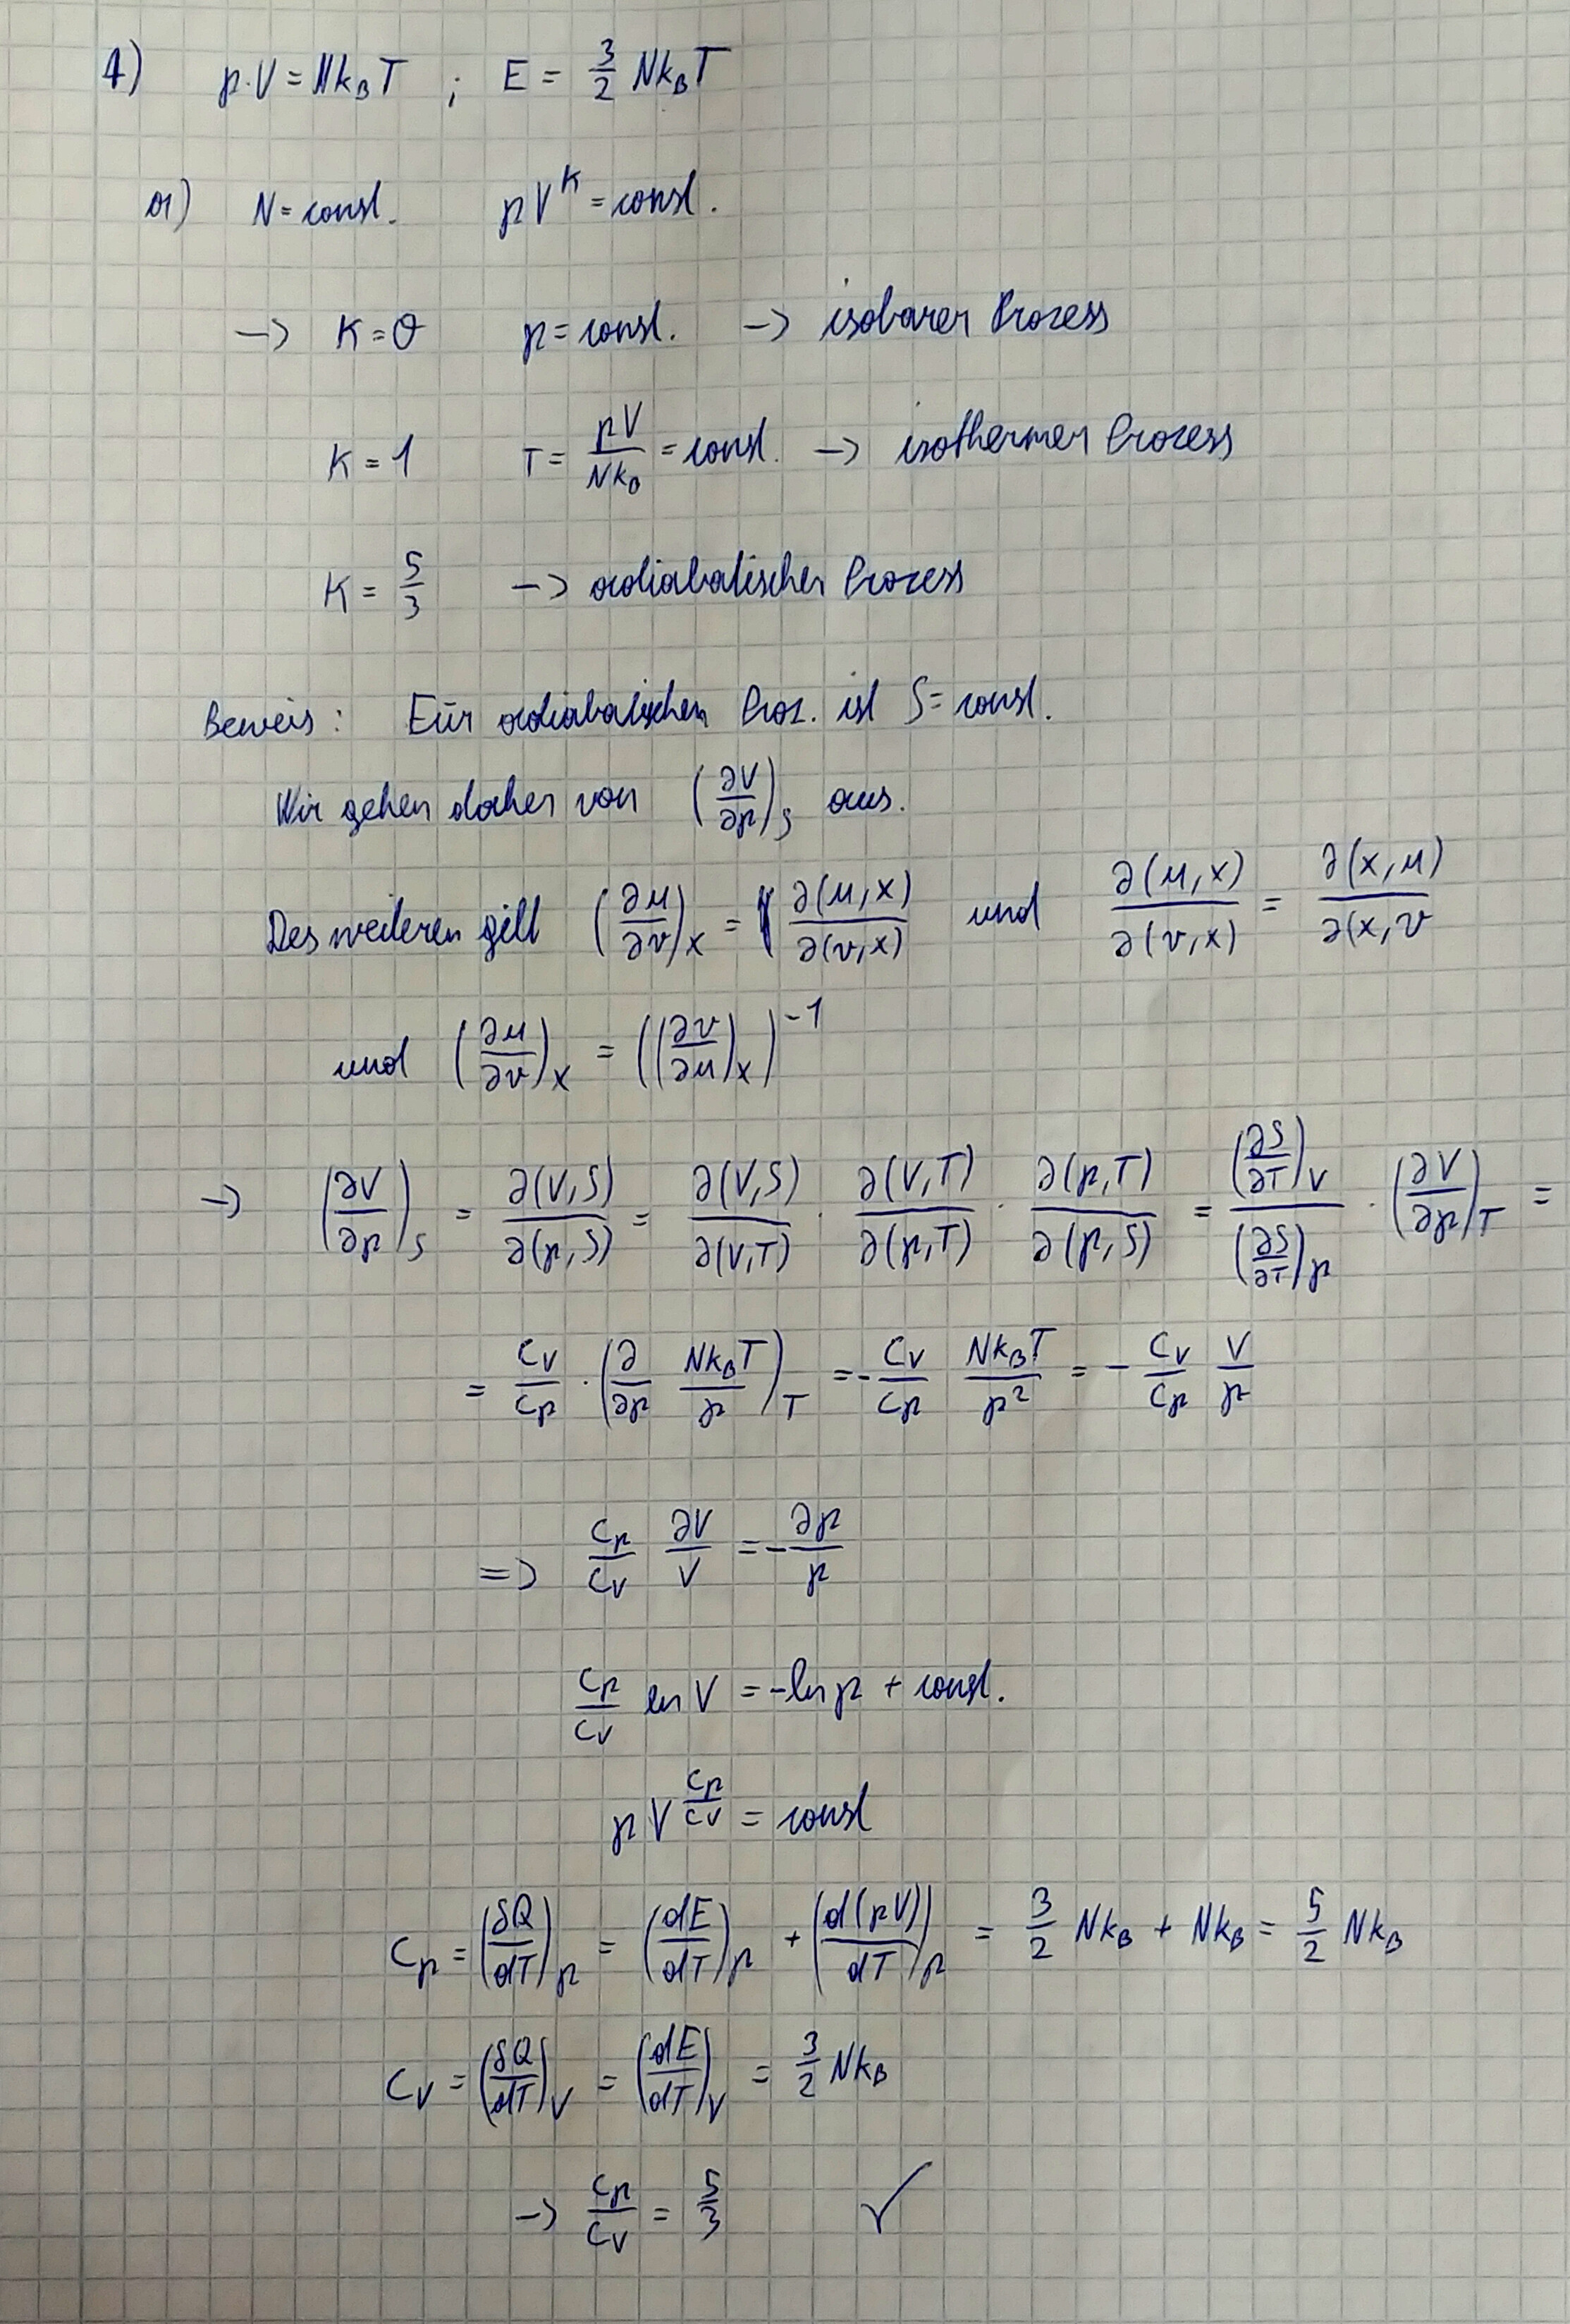 1) p·V = Nk_BT ; E = 3/2 Nk_BT
a) N = const. pV^K = const.
-> K = 0 p = const. -> isobarer Prozess
K = 1 T = pV/(Nk_B) = const. -> isothermer Prozess
K = 5/3 -> adiabatischer Prozess
Beweis: Für adiabatischen Proz. ist S = const.
Wir gehen daher von (∂V/∂p)_S aus.
Des weiteren gilt (∂u/∂v)_x = ∂(u,x)/∂(v,x) und ∂(u,x)/∂(v,x) = ∂(x,u)/∂(x,v
und (∂u/∂v)_x = ((∂v/∂u)_x)^-1
-> (∂V/∂p)_S = ∂(V,S)/∂(p,S) = ∂(V,S)/∂(V,T) · ∂(V,T)/∂(p,T) · ∂(p,T)/∂(p,S) = (∂S/∂T)_V/(∂S/∂T)_p · (∂V/∂p)_T =
= C_V/C_p · (∂/∂p Nk_BT/p)_T = - C_V/C_p Nk_BT/p² = - C_V/C_p V/p
=> C_p/C_V ∂V/V = - ∂p/p
C_p/C_V ln V = - ln p + const.
pV^(C_p/C_V) = const
C_p = (δQ/dT)_p = (dE/dT)_p + (d(pV)/dT)_p = 3/2 Nk_B + Nk_B = 5/2 Nk_B
C_V = (δQ/dT)_V = (dE/dT)_V = 3/2 Nk_B
-> C_p/C_V = 5/3 ✓